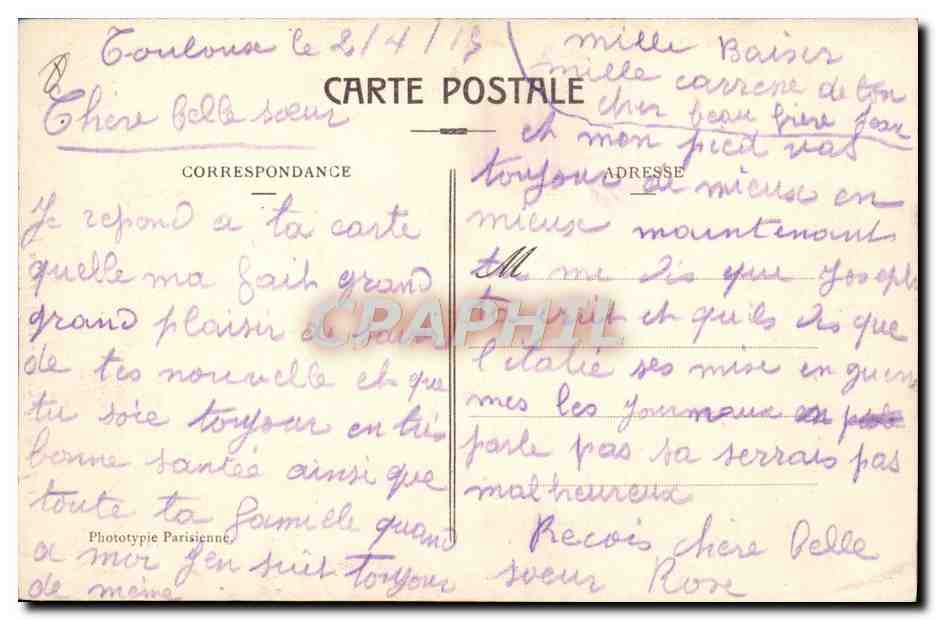 Toulouse le 2/4/15
CARTE POSTALE
Chère belle sœur
CORRESPONDANCE
Je repond a ta carte
quelle ma fait grand
grand plaisir de
de tes nouvelle et que
tu soie toujour en très
bonne santée ainsi que
toute ta famille quand
Phototypie Parisienne.
a moi jen suit toujour
de même
mille Baiser
mille carresse de ton
cher beau frère
et mon pied vas
ADRESSE
toujour de mieux en
mieux maintenant
tu me dis que Joseph
ta ecrit et quils dis que
l'italie ses mise en guerre
mes les journaux en
parle pas sa serrais pas
malheureux
Recois chère belle
soeur Rose
CPAPHIL